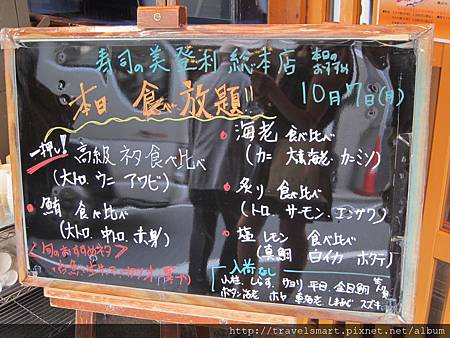 寿司の美登利 総本店 本日の おすすめ
本日 食べ放題!!
10月7日(月)
一押し! 高級ネタ食べ比べ
(大トロ、ウニ アワビ)
鮪 食べ比べ
(大トロ、中トロ、赤身)
旬のおすすめネタ
海老 食べ比べ
(カニ 大海老 カニミソ)
炙り 食べ比べ
(トロ、サーモン、エンガワ)
塩レモン 食べ比べ
(真鯛 白イカ ホタテ)
入荷なし
小柱、しらす、サヨリ 平目、金目鯛
ボタン海老 ホヤ 車海老 しまあじ スズキ
http://travelsmart.pixnet.net/album